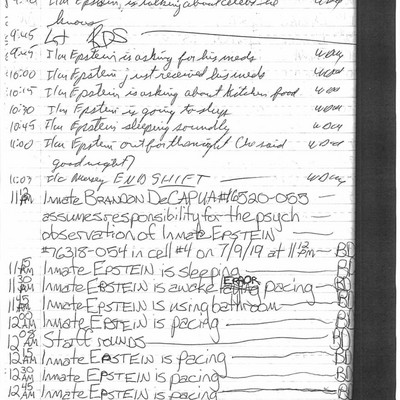 9:40 I/m Epstein, is talking about celebs he
knows
9:45 Lt RDS
9:45 I/m Epstein is asking for his meds
10:00 I/m Epstein, just received his meds
10:15 I/m Epstein is asking about kitchen food
10:30 I/m Epstein is going to sleep
10:45 I/m Epstein sleeping soundly
11:00 I/m Epstein out for the night (he said
goodnight)
11:03 END SHIFT
11 12 PM Inmate BRANDON DeCAPUA #16520-055
assumes responsibility for the psych
observation of Inmate EPSTEIN
#76318-054 in cell #4 on 7/9/19 at 11 12 pm BD
11 15 PM Inmate EPSTEIN is sleeping BD
11 30 PM Inmate EPSTEIN is awake ERROR pacing BD
11 45 PM Inmate EPSTEIN is using bathroom BD
12 00 AM Inmate EPSTEIN is pacing BD
12 08 AM Staff rounds BD
12 15 AM Inmate EPSTEIN is pacing BD
12 30 AM Inmate EPSTEIN is pacing BD
12 45 AM Inmate EPSTEIN is pacing BD